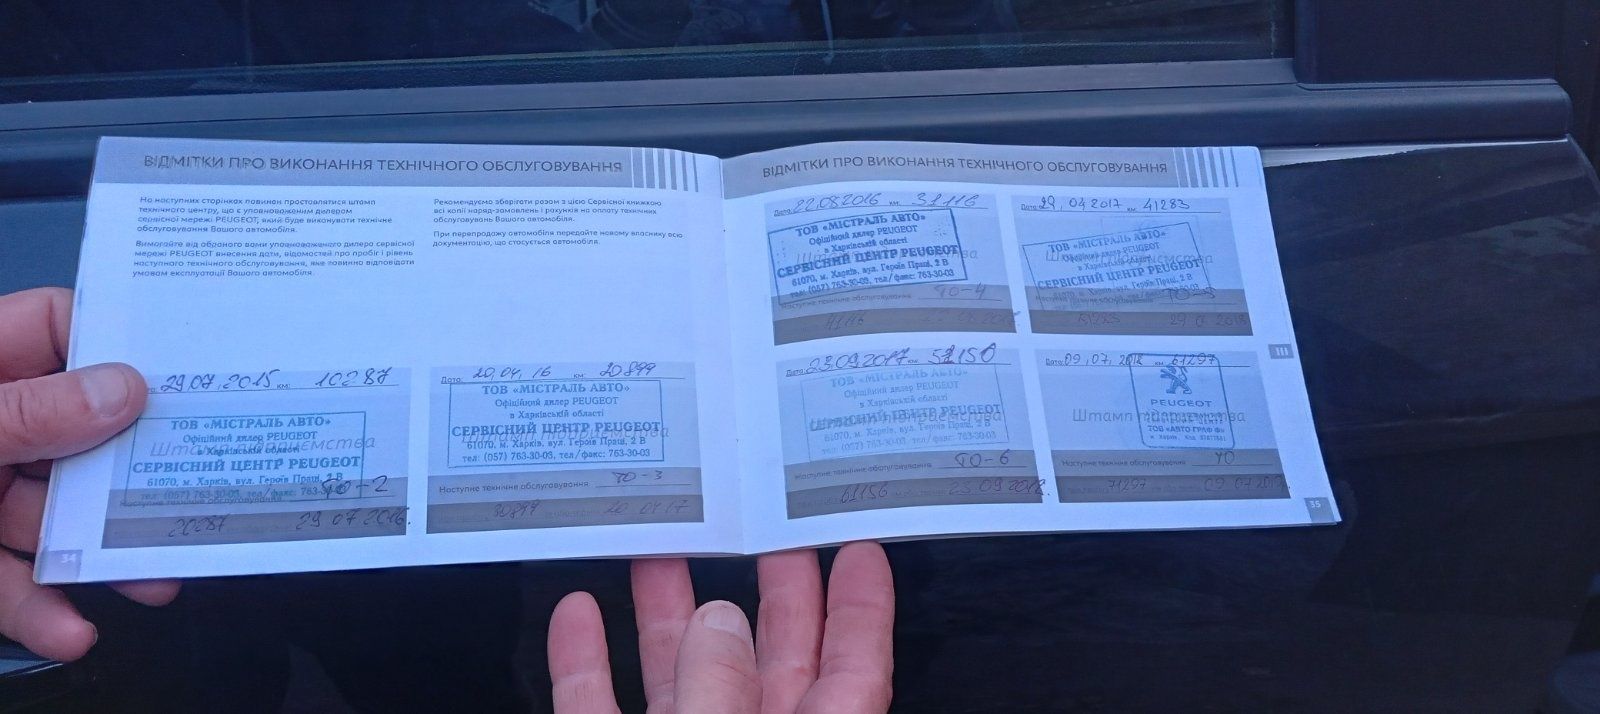 ВІДМІТКИ ПРО ВИКОНАННЯ ТЕХНІЧНОГО ОБСЛУГОВУВАННЯ
На наступних сторінках повинен проставлятися штамп
технічного центру, що є уповноваженим дилером
сервісної мережі PEUGEOT, який буде виконувати технічне
обслуговування Вашого автомобіля.
Вимагайте від обраного вами уповноваженого дилера сервісної
мережі PEUGEOT внесення дати, відомостей про пробіг і рівень
наступного технічного обслуговування, яке повинно відповідати
умовам експлуатації Вашого автомобіля.
Рекомендуємо зберігати разом з цією Сервісної книжкою
всі копії наряд-замовлень і рахунків на оплату технічних
обслуговувань Вашого автомобіля.
При перепродажу автомобіля передайте новому власнику всю
документацію, що стосується автомобіля.
29.07.2015 км: 10287
ТОВ «МІСТРАЛЬ АВТО»
Офіційний дилер PEUGEOT
в Харківській області
Штамп підприємства
СЕРВІСНИЙ ЦЕНТР PEUGEOT
61070, м. Харків, вул. Героїв Праці, 2 В
тел: (057) 763-30-03, тел/факс: 763-30-03
Наступне технічне обслуговування ТО-2
20287 29 07 2016.
Дата: 20,04,16 км: 20899
ТОВ «МІСТРАЛЬ АВТО»
Офіційний дилер PEUGEOT
в Харківській області
СЕРВІСНИЙ ЦЕНТР PEUGEOT
Штамп підприємства
61070, м. Харків, вул. Героїв Праці, 2 В
тел: (057) 763-30-03, тел/факс: 763-30-03
Наступне технічне обслуговування ТО-3
30899 20 04 17
34
ВІДМІТКИ ПРО ВИКОНАННЯ ТЕХНІЧНОГО ОБСЛУГОВУВАННЯ
Дата: 22.082016 км: 31116
ТОВ «МІСТРАЛЬ АВТО»
Офіційний дилер PEUGEOT
в Харківській області
СЕРВІСНИЙ ЦЕНТР PEUGEOT
61070, м. Харків, вул. Героїв Праці, 2 В
тел: (057) 763-30-03, тел/факс: 763-30-03
Наступне технічне обслуговування ТО-4
41116
Дата: 29,042017 км: 41283
ТОВ «МІСТРАЛЬ АВТО»
Офіційний дилер PEUGEOT
в Харківській області
СЕРВІСНИЙ ЦЕНТР PEUGEOT
61070, м. Харків, вул. Героїв Праці, 2 В
ТО-5
2018
Дата: 23.092017 км: 51150
ТОВ «МІСТРАЛЬ АВТО»
Офіційний дилер PEUGEOT
в Харківській області
СЕРВІСНИЙ ЦЕНТР PEUGEOT
61070, м. Харків, вул. Героїв Праці, 2 В
тел: (057) 763-30-03, тел/факс: 763-30-03
Наступне технічне обслуговування ТО-6
61156 23 09 2018.
Дата: 09,07,2018 км: 61297
PEUGEOT
Штамп підприємства
ТОВ «АВТО ГРАФ Ф»
Наступне технічне обслуговування ТО
71297 09 07
III
35